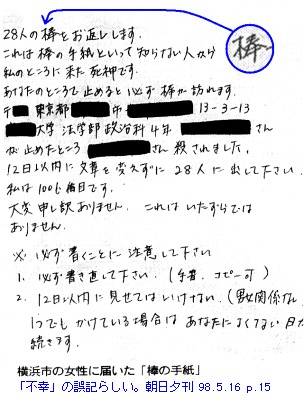 28人の棒をお返しします。
これは棒の手紙といって知らない人から
私のところに来た死神です。
あなたのところで止めると必ず棒が訪れます。
棒
東京都 市 13-3-13
大学 法学部政治科4年 さん
が止めたところ さん殺されました。
12日以内に文章を変えずに28人に出して下さい。
私は1006番目です。
大変申し訳ありません。これはいたずらでは
ありません。
※必ず書くことに注意して下さい
1. 必ず書き直して下さい(手書、コピー可)
2. 12日以内に見せてはいけない。(男女関係なし
1つでもかけている場合はあなたによくない日が
続きます。
横浜市の女性に届いた「棒の手紙」
「不幸」の誤記らしい。朝日夕刊 98.5.16 p.15